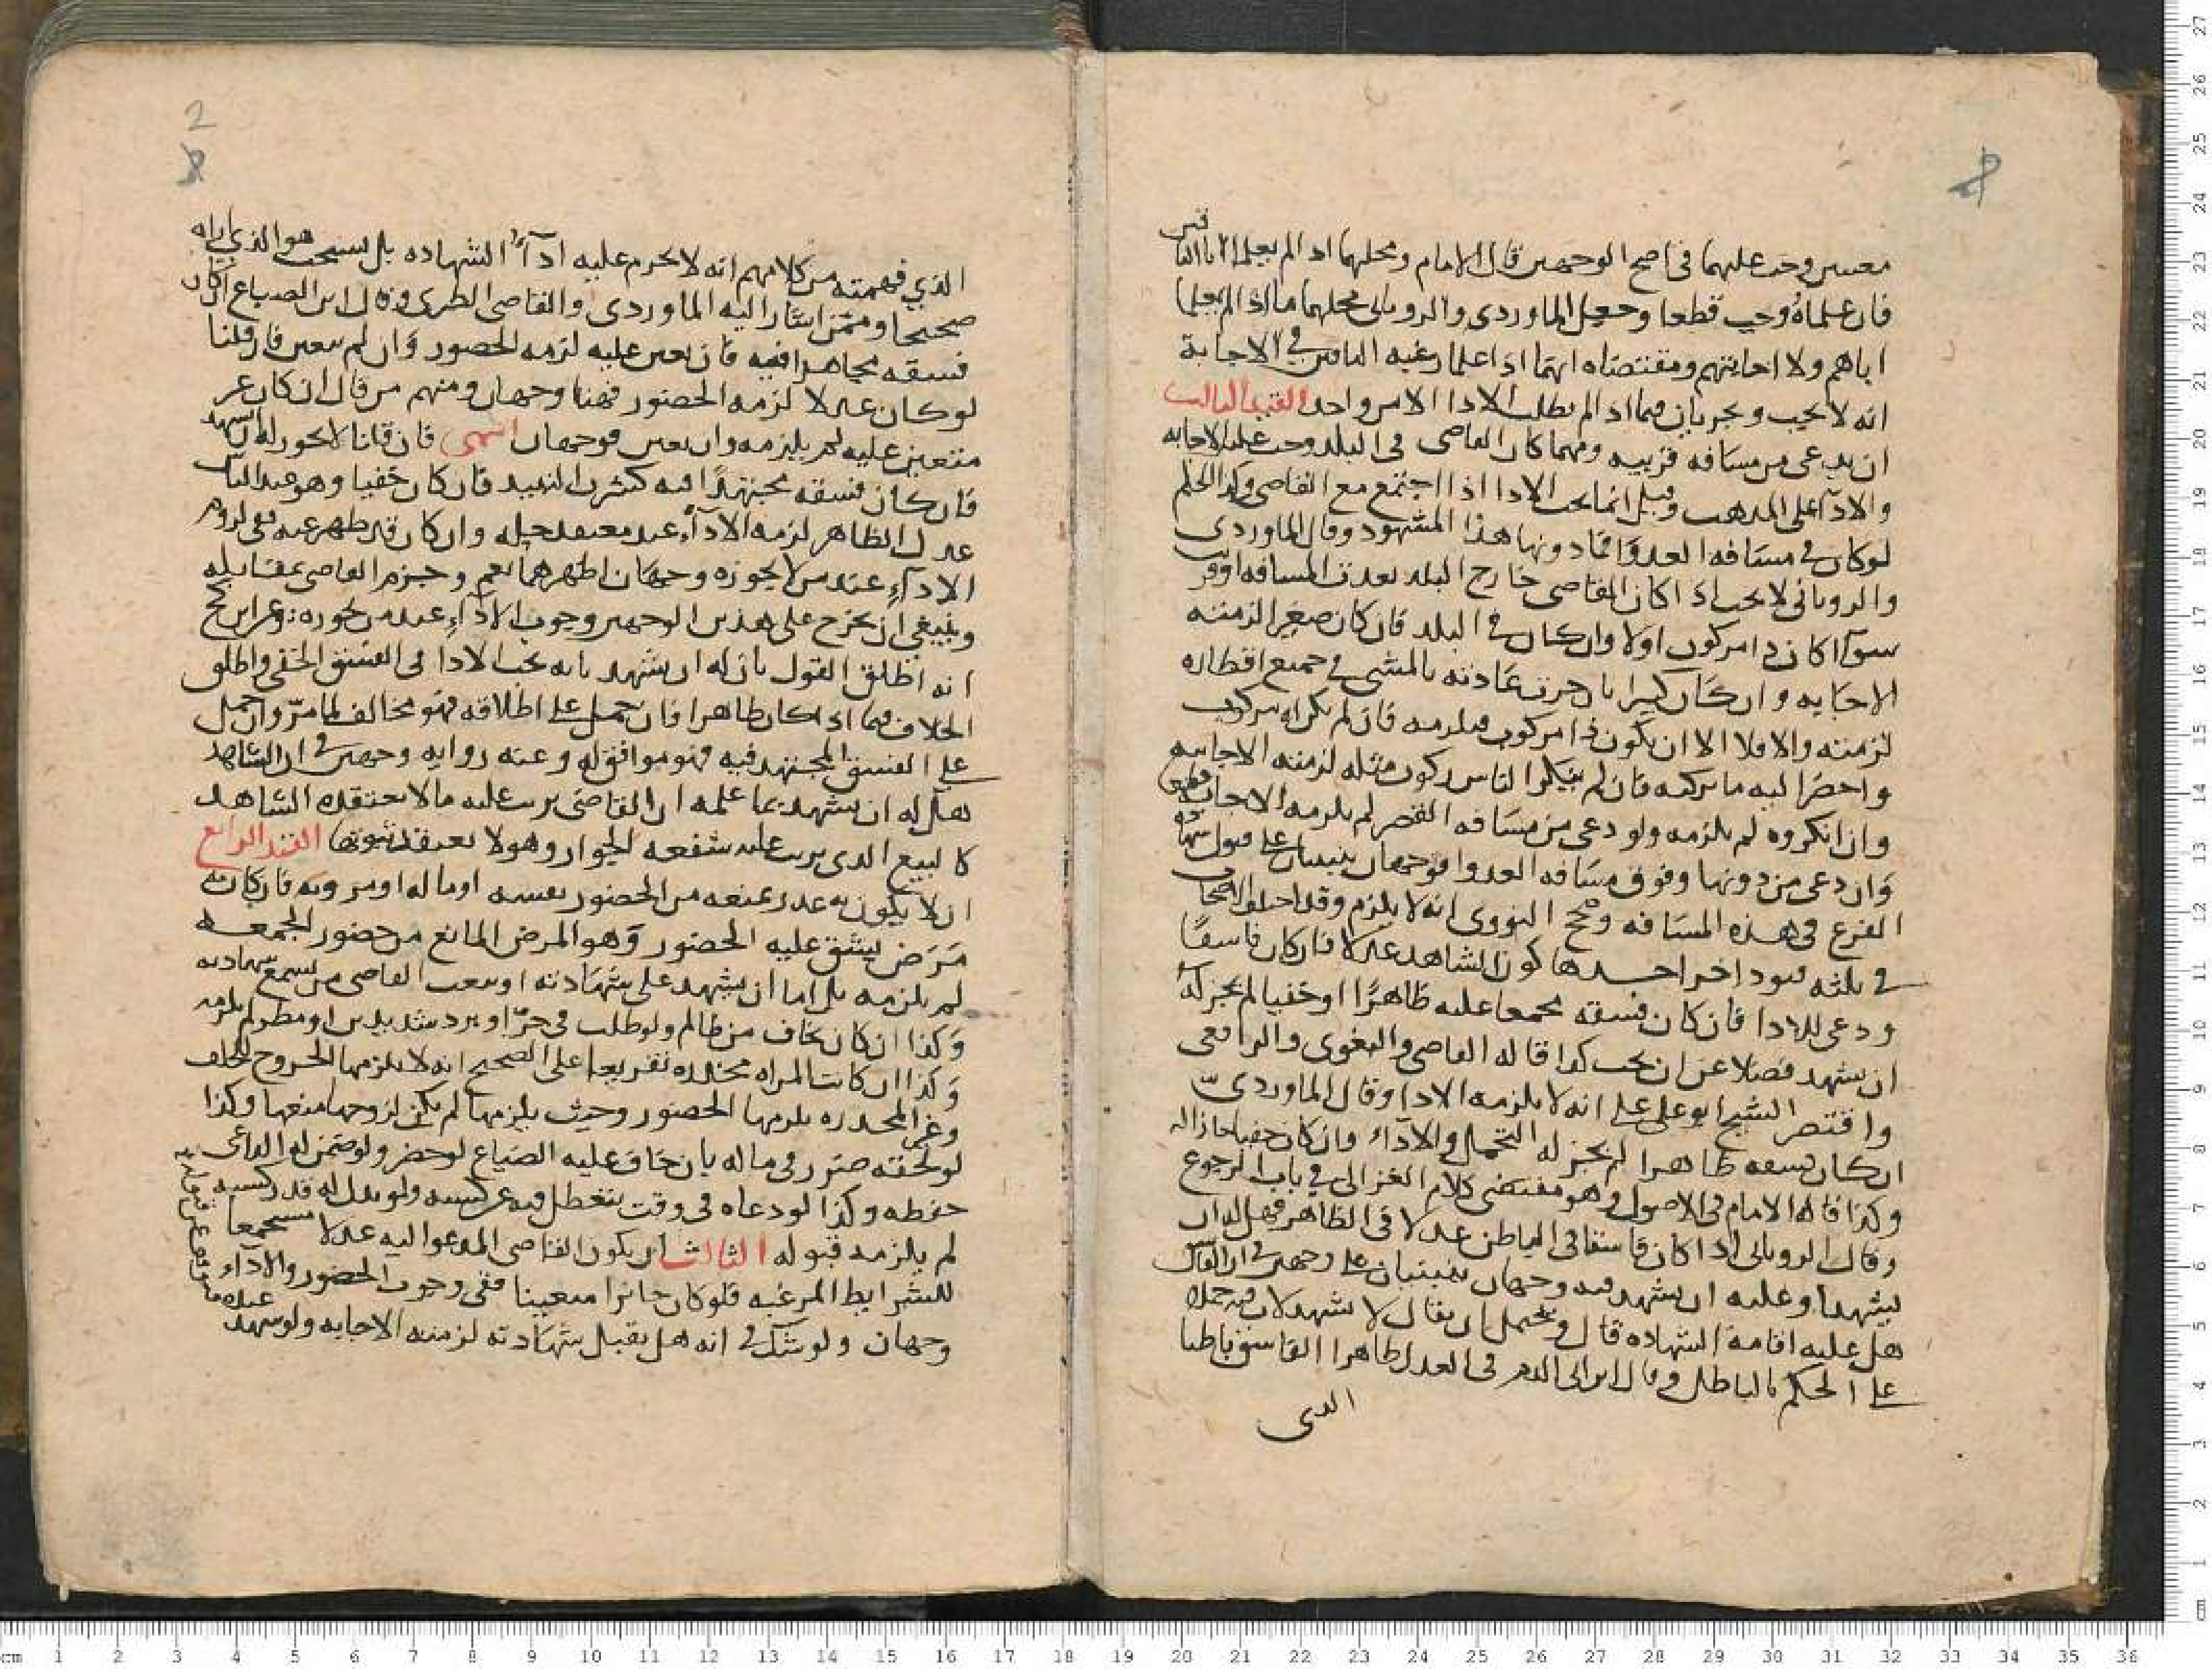 معينين وجبت عليهما في اصح الوجهين قال الامام ومحلهما اذا لم يعلما اباالباقين
فان علماه وجب قطعا وجعل الماوردى والرويانى محلهما ما اذا لم يعلما
اباهم ولا اجابتهم ومقتضاه انهما اذا علما رغبه الباقين في الاجابة
انه لا يجب ويجريان فيما اذا لم يطلب الادا الا من واحد القيد الثالث
ان يدعى من مسافه قريبه ومهما كان القاضى في البلد وجبت عليه الاجابه
والادآ على المذهب وقيل انما يجب الادا اذا اجتمع مع القاضى وكذا الحكم
لو كان في مسافه العدوا فما دونها هذا المشهود وقال الماوردى
والرويانى لا يجب اذا كان القاضى خارج البلد بعدت المسافه او قربت
سوآ اكان ذا مركوب اولا وان كان في البلد فان كان صغيرا لزمته
الاجابه وان كان كبيرا بان جرت عادته بالمشى في جميع اقطاره
لزمته والا فلا الا ان يكون ذا مركوب فيلزمه فان لم يكن له مركوب
واحضر اليه ما يركبه فان لم ينكر الناس ركوب مثله لزمته الاجابه
وان انكروه لم يلزمه ولو دعى من مسافه القصر لم يلزمه الاجابه قطعا
وان دعى من دونها وفوق مسافه العدوا فوجهان ينبنيان على قبول شهاده
الفرع في هذه المسافه وصحح النووى انه لا يلزم وقد اختلف الاصحاب
في ثلثه قيود اخر احدها كون الشاهد عدلا فان كان فاسقا
ودعى للادا فان كان فسقه مجمعا عليه ظاهرا او خفيا لم يجز له
ان يشهد فضلا عن ان يجب كذا قاله القاضى والبغوى والرافعى
واقتصر الشيخ ابو على على انه لا يلزمه الادا وقال الماوردى
ان كان فسقه ظاهرا لم يجز له التحمل والادآء وان كان خفيا جاز اله
وكذا قاله الامام في الاصول وهو مقتضى كلام الغزالى في باب الرجوع
وقال الرويانى اذا كان فاسقا في الباطن عدلا في الظاهر فهل له ان
يشهد او عليه ان يشهد فيه وجهان ينبنيان على وجهين في ان الفاسق
هل عليه اقامة الشهاده قال ويحتمل ان يقال لا يشهد لان فيه حمله
على الحكم بالباطل وقال ابن ابى الدم في العدل ظاهرا الفاسق باطنا
الذى
2
الذي فهمته من كلامهم انه لا يحرم عليه ادآء الشهاده بل يستحب هو الذي اراه
صحيحا وممن اشار اليه الماوردى والقاضى الطبرى وقال ابن الصباغ ان كان
فسقه مجاهرا فيه فان تعين عليه لزمه الحضور وان لم يتعين فان قلنا
لو كان عدلا لزمه الحضور فهنا وجهان ومنهم من قال ان كان غير
متعين عليه لم يلزمه وان تعين فوجهان انتهى فان قلنا لا يجوز له ان يشهد
فان كان فسقه مجتهدًا فيه كشرب النبيد فان كان خفيا وهو عند الناس
عدل الظاهر لزمه الادآء عند معتقد حله وان كان قد ظهر عنه ففي لزوم
الادآء عند من لا يجوزه وجهان اظهرهما نعم وجزم القاضى بمقابله
وينبغي ان يخرج على هذين الوجهين وجوب الادآء عند من يجوزه وعن ابن كج
انه اطلق القول بان له ان يشهد بانه يجب الادا في الفسق الخفى واطلق
الخلاف فيما اذا كان ظاهرا فان حمل على اطلاقه فهو مخالف لما مرّ وان حمل
على الفسق المجتهد فيه فهو موافق له وعنه روايه وجهين في ان الشاهد
هل له ان يشهد بما علمه ان القاضى يرتب عليه ما لا يعتقده الشاهد
كالبيع الذى يرتب عليه شفعه الجوار وهو لا يعتقد ثبوتها القيد الرابع
ان لا يكون به عذر يمنعه من الحضور بنفسه او ماله او مروته فان كان به
مَرَض يشق عليه الحضور وهو المرض المانع من حضور الجمعه
لم يلزمه بل اما ان يشهد على شهادته او يبعث القاضى من يسمع شهادته
وكذا ان كان يخاف من ظالم ولو طلب في حرّ او برد شديدين او مطر لم يلزمه
وكذا ان كانت المراه مخدره تفريعا على الصحيح انه لا يلزمها الخروج للحلف
وغير المخدره يلزمها الحضور وحيث يلزمها لم يكن لزوجها منعها وكذا
لو لحقه ضرر في ماله بان خاف عليه الضياع لو حضر ولو ضمن له الداعى
حفظه وكذا لو دعاه في وقت يتعطل فيه عن كسبه ولو بدل له قدر كسبه
لم يلزمه قبوله الثالث ان يكون القاضى المدعوا اليه عدلا مستجمعا
للشرايط المرعيه فلو كان جائرا متعينا ففي وجوب الحضور والادآء عنده
وجهان ولو شك في انه هل يقبل شهادته لزمته الاجابه ولو شهد